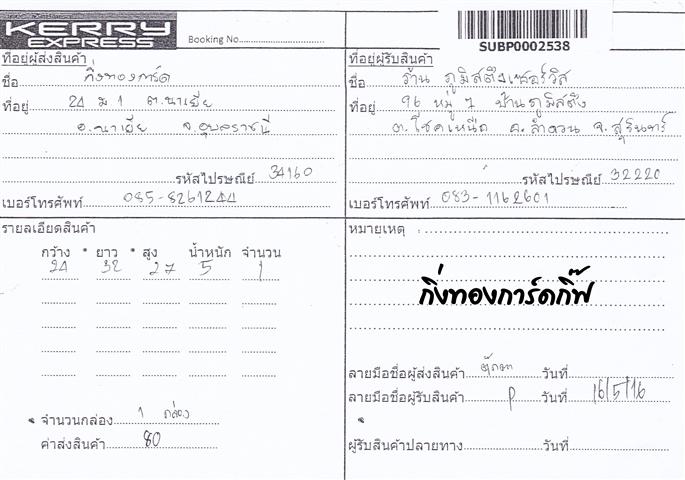 KERRY
EXPRESS
Booking No.
SUBP0002538
ที่อยู่ผู้ส่งสินค้า
ชื่อ กิ่งทองการ์ด
ที่อยู่ 24 ม 1 ต.นาเยีย
อ.นาเยีย จ.อุบลราชธานี
รหัสไปรษณีย์ 34160
เบอร์โทรศัพท์ 085-8261244
ที่อยู่ผู้รับสินค้า
ชื่อ ร้าน ภูมิสตึงเซอร์วิส
ที่อยู่ 96 หมู่ 7 บ้านภูมิสตึง
ต.โชคเหนือ อ.ลำดวน จ.สุรินทร์
รหัสไปรษณีย์ 32220
เบอร์โทรศัพท์ 083-1162601
รายลเอียดสินค้า
กว้าง * ยาว * สูง น้ำหนัก จำนวน
24 32 27 5 1
* จำนวนกล่อง 1 กล่อง
ค่าส่งสินค้า 80
หมายเหตุ :
กิ่งทองการ์ดกิ๊ฟ
ลายมือชื่อผู้ส่งสินค้า วันที่
ลายมือชื่อผู้รับสินค้า P วันที่ 16/5/16
*
ผู้รับสินค้าปลายทาง วันที่